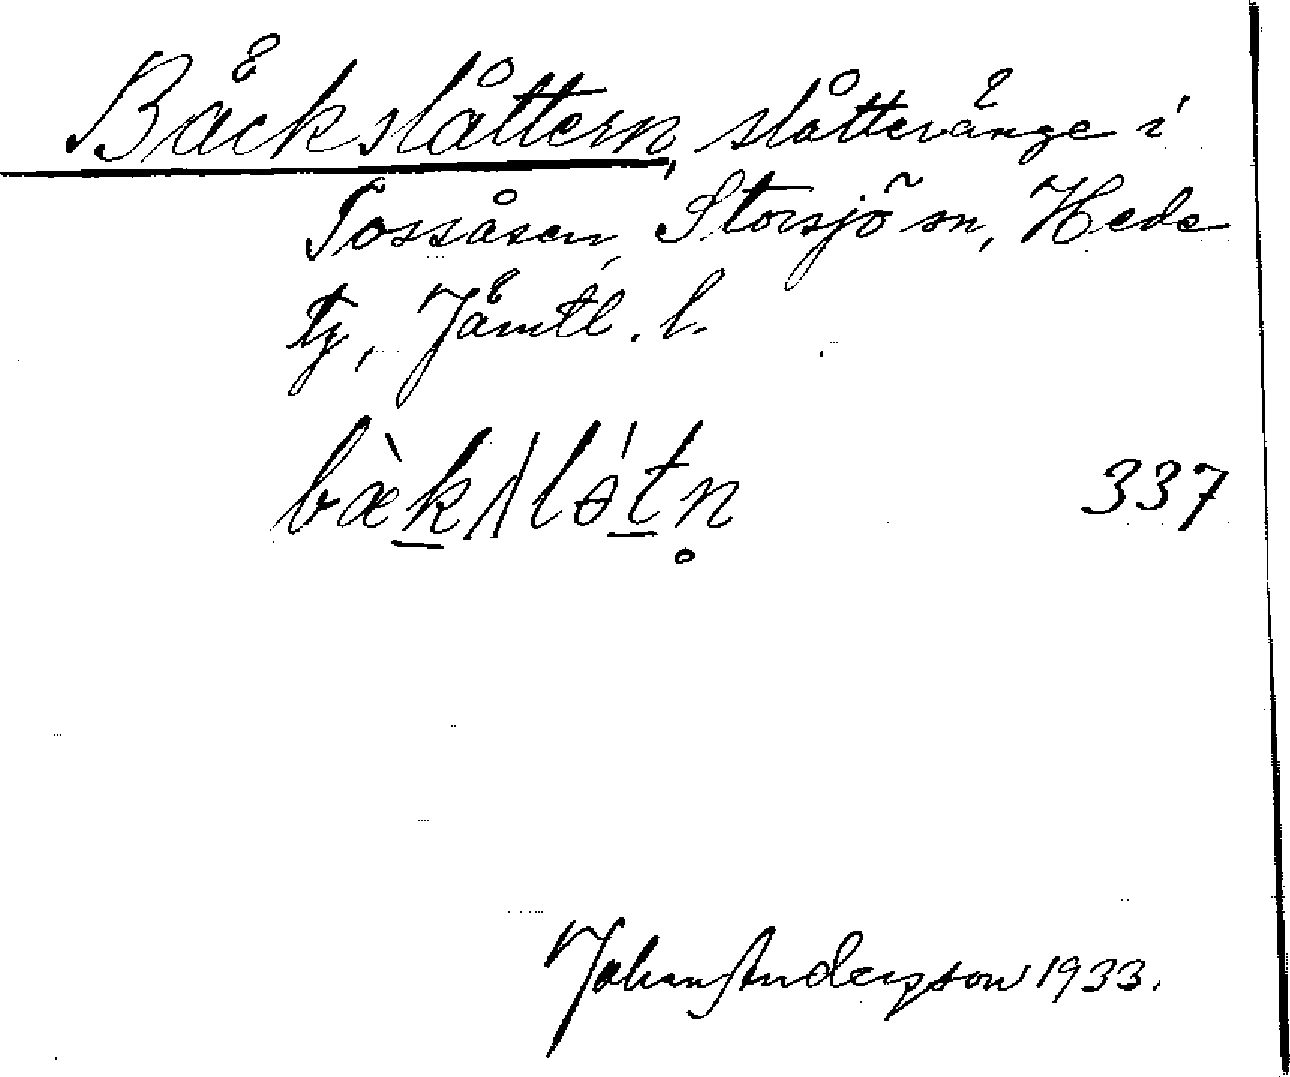 Bäckslåttern, slåttevånge i
Tossåsen, Storsjö sn, Heds
tg, Jämtl. l.
bæ̀k̲s|lɔ́t̲n̥ 337
Johan Anderson 1933.